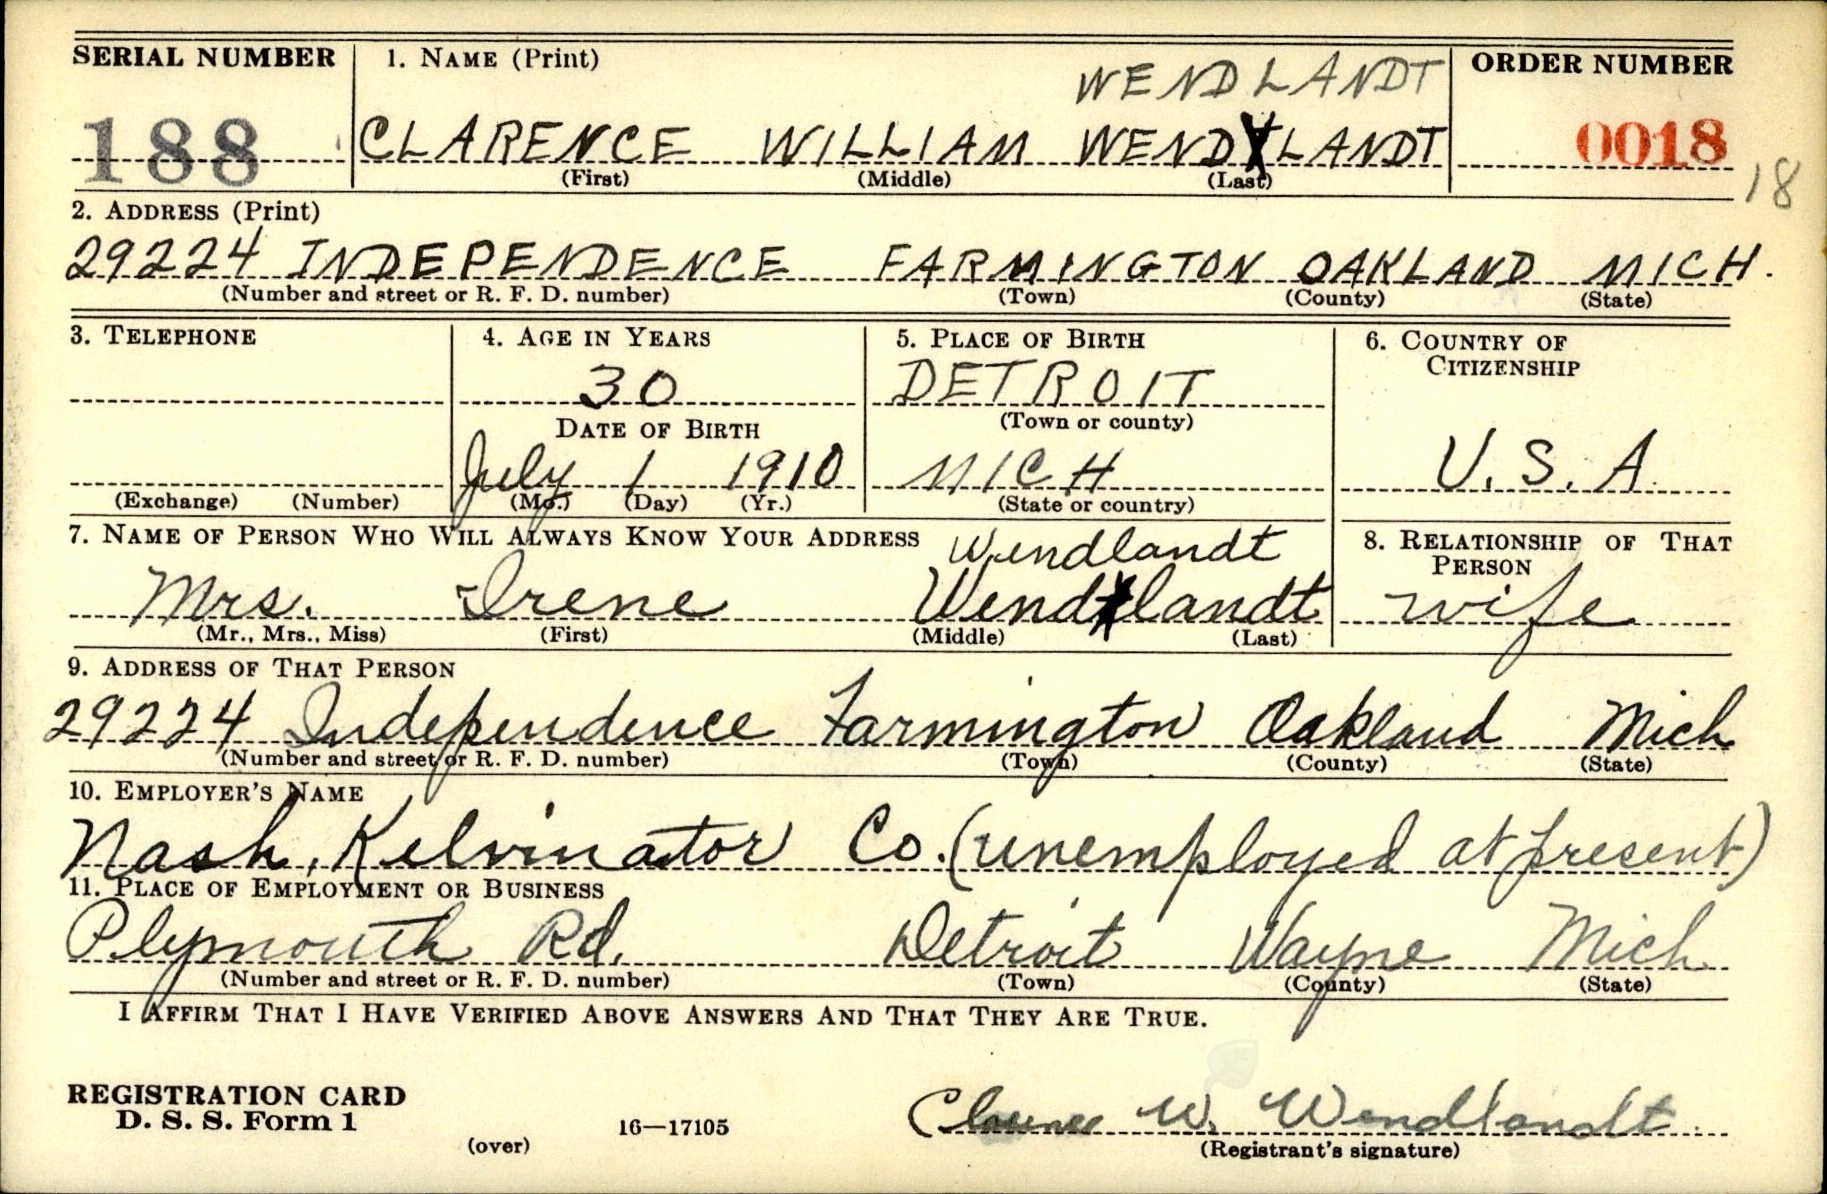 SERIAL NUMBER 1. NAME (Print) ORDER NUMBER
WENDLANDT
188 CLARENCE WILLIAM WENDLANDT 0018
(First) (Middle) (Last) 18
2. ADDRESS (Print)
29224 INDEPENDENCE FARMINGTON OAKLAND MICH.
(Number and street or R. F. D. number) (Town) (County) (State)
3. TELEPHONE 4. AGE IN YEARS 5. PLACE OF BIRTH 6. COUNTRY OF CITIZENSHIP
30 DETROIT
DATE OF BIRTH (Town or county)
July 1 1910 MICH U.S.A.
(Exchange) (Number) (Mo.) (Day) (Yr.) (State or country)
7. NAME OF PERSON WHO WILL ALWAYS KNOW YOUR ADDRESS 8. RELATIONSHIP OF THAT PERSON
Wendlandt
Mrs. Irene Wendlandt wife
(Mr., Mrs., Miss) (First) (Middle) (Last)
9. ADDRESS OF THAT PERSON
29224 Independence Farmington Oakland Mich
(Number and street or R. F. D. number) (Town) (County) (State)
10. EMPLOYER'S NAME
Nash, Kelvinator Co. (unemployed at present)
11. PLACE OF EMPLOYMENT OR BUSINESS
Plymouth Rd. Detroit Wayne Mich
(Number and street or R. F. D. number) (Town) (County) (State)
I AFFIRM THAT I HAVE VERIFIED ABOVE ANSWERS AND THAT THEY ARE TRUE.
REGISTRATION CARD
D. S. S. Form 1 16—17105 Clarence W. Wendlandt
(over) (Registrant's signature)